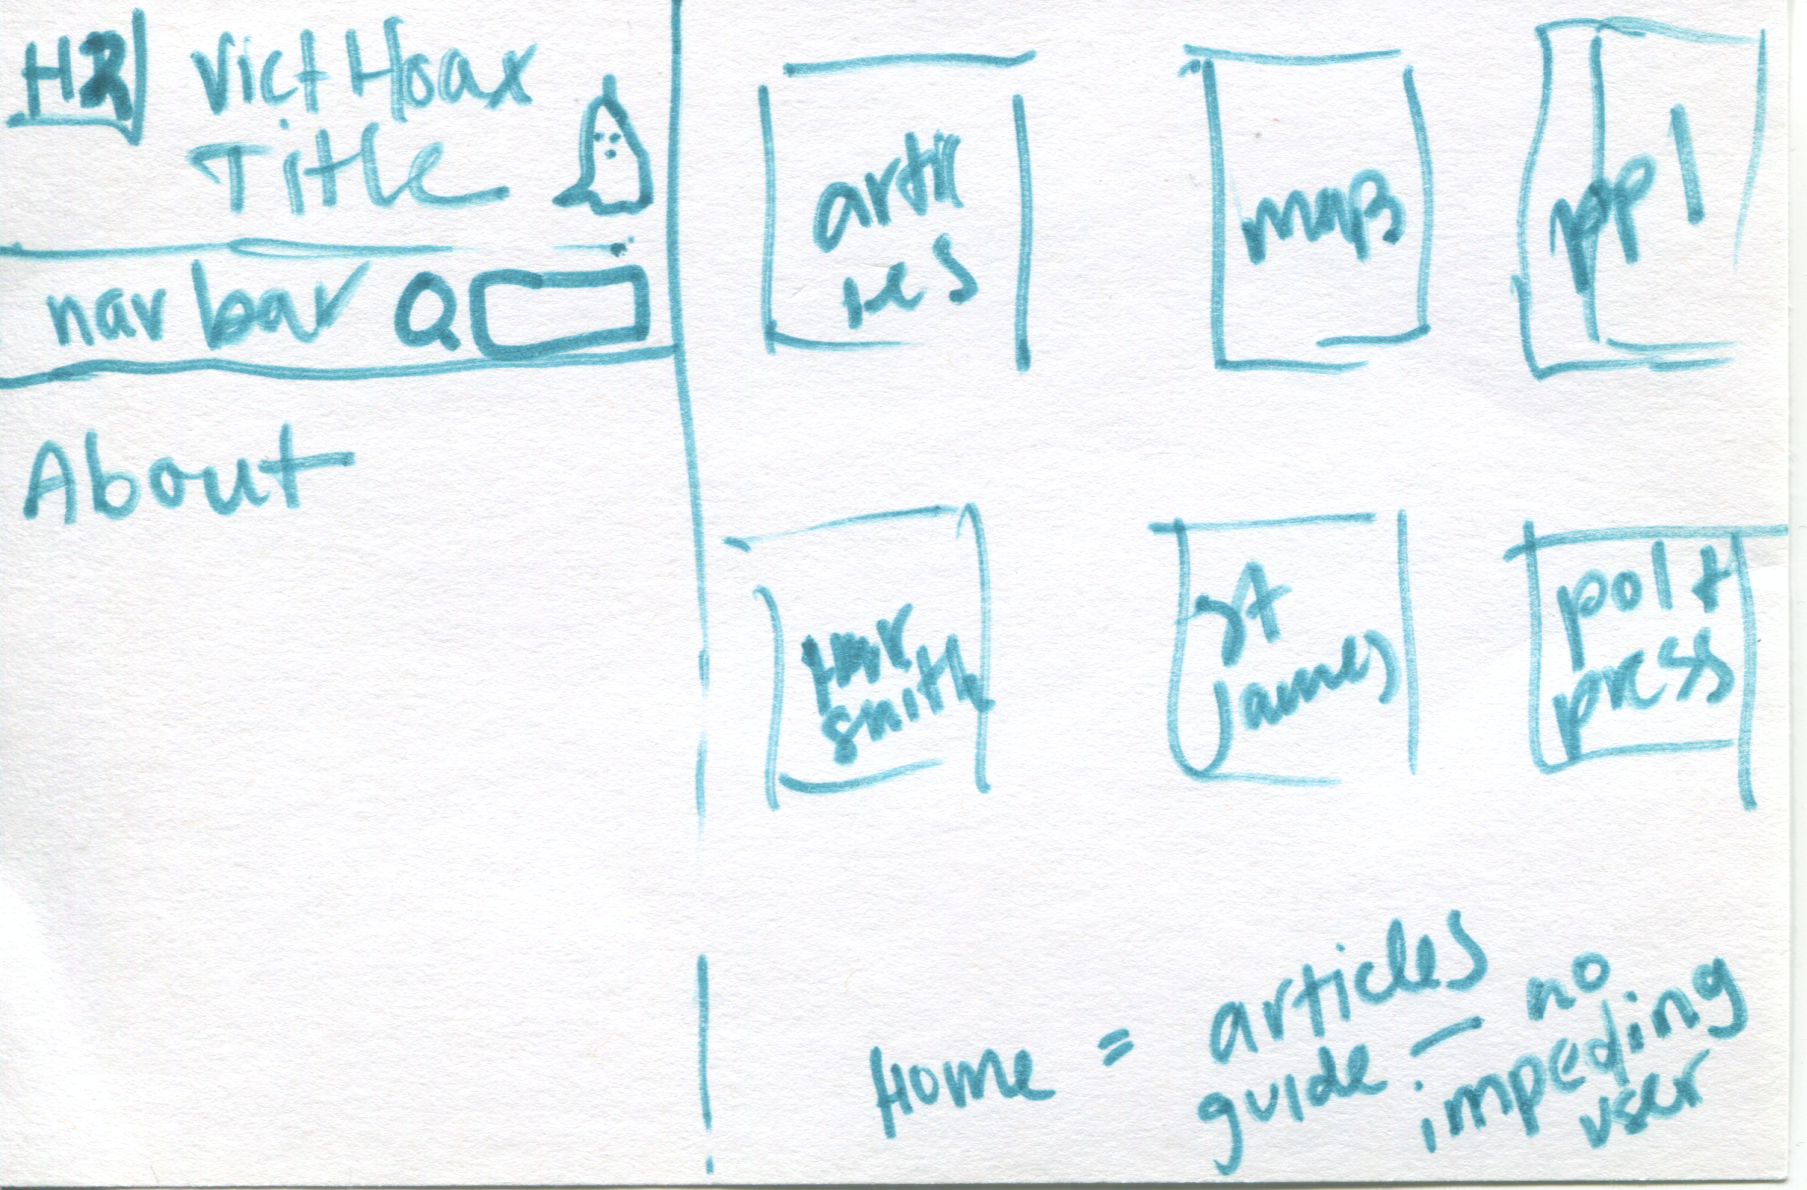 H2
Vict Hoax
Title
nav bar
About
artic
les
map
ppl
Ham
smith
st
James
polt
press
Home = articles
guide — no
impeding
user